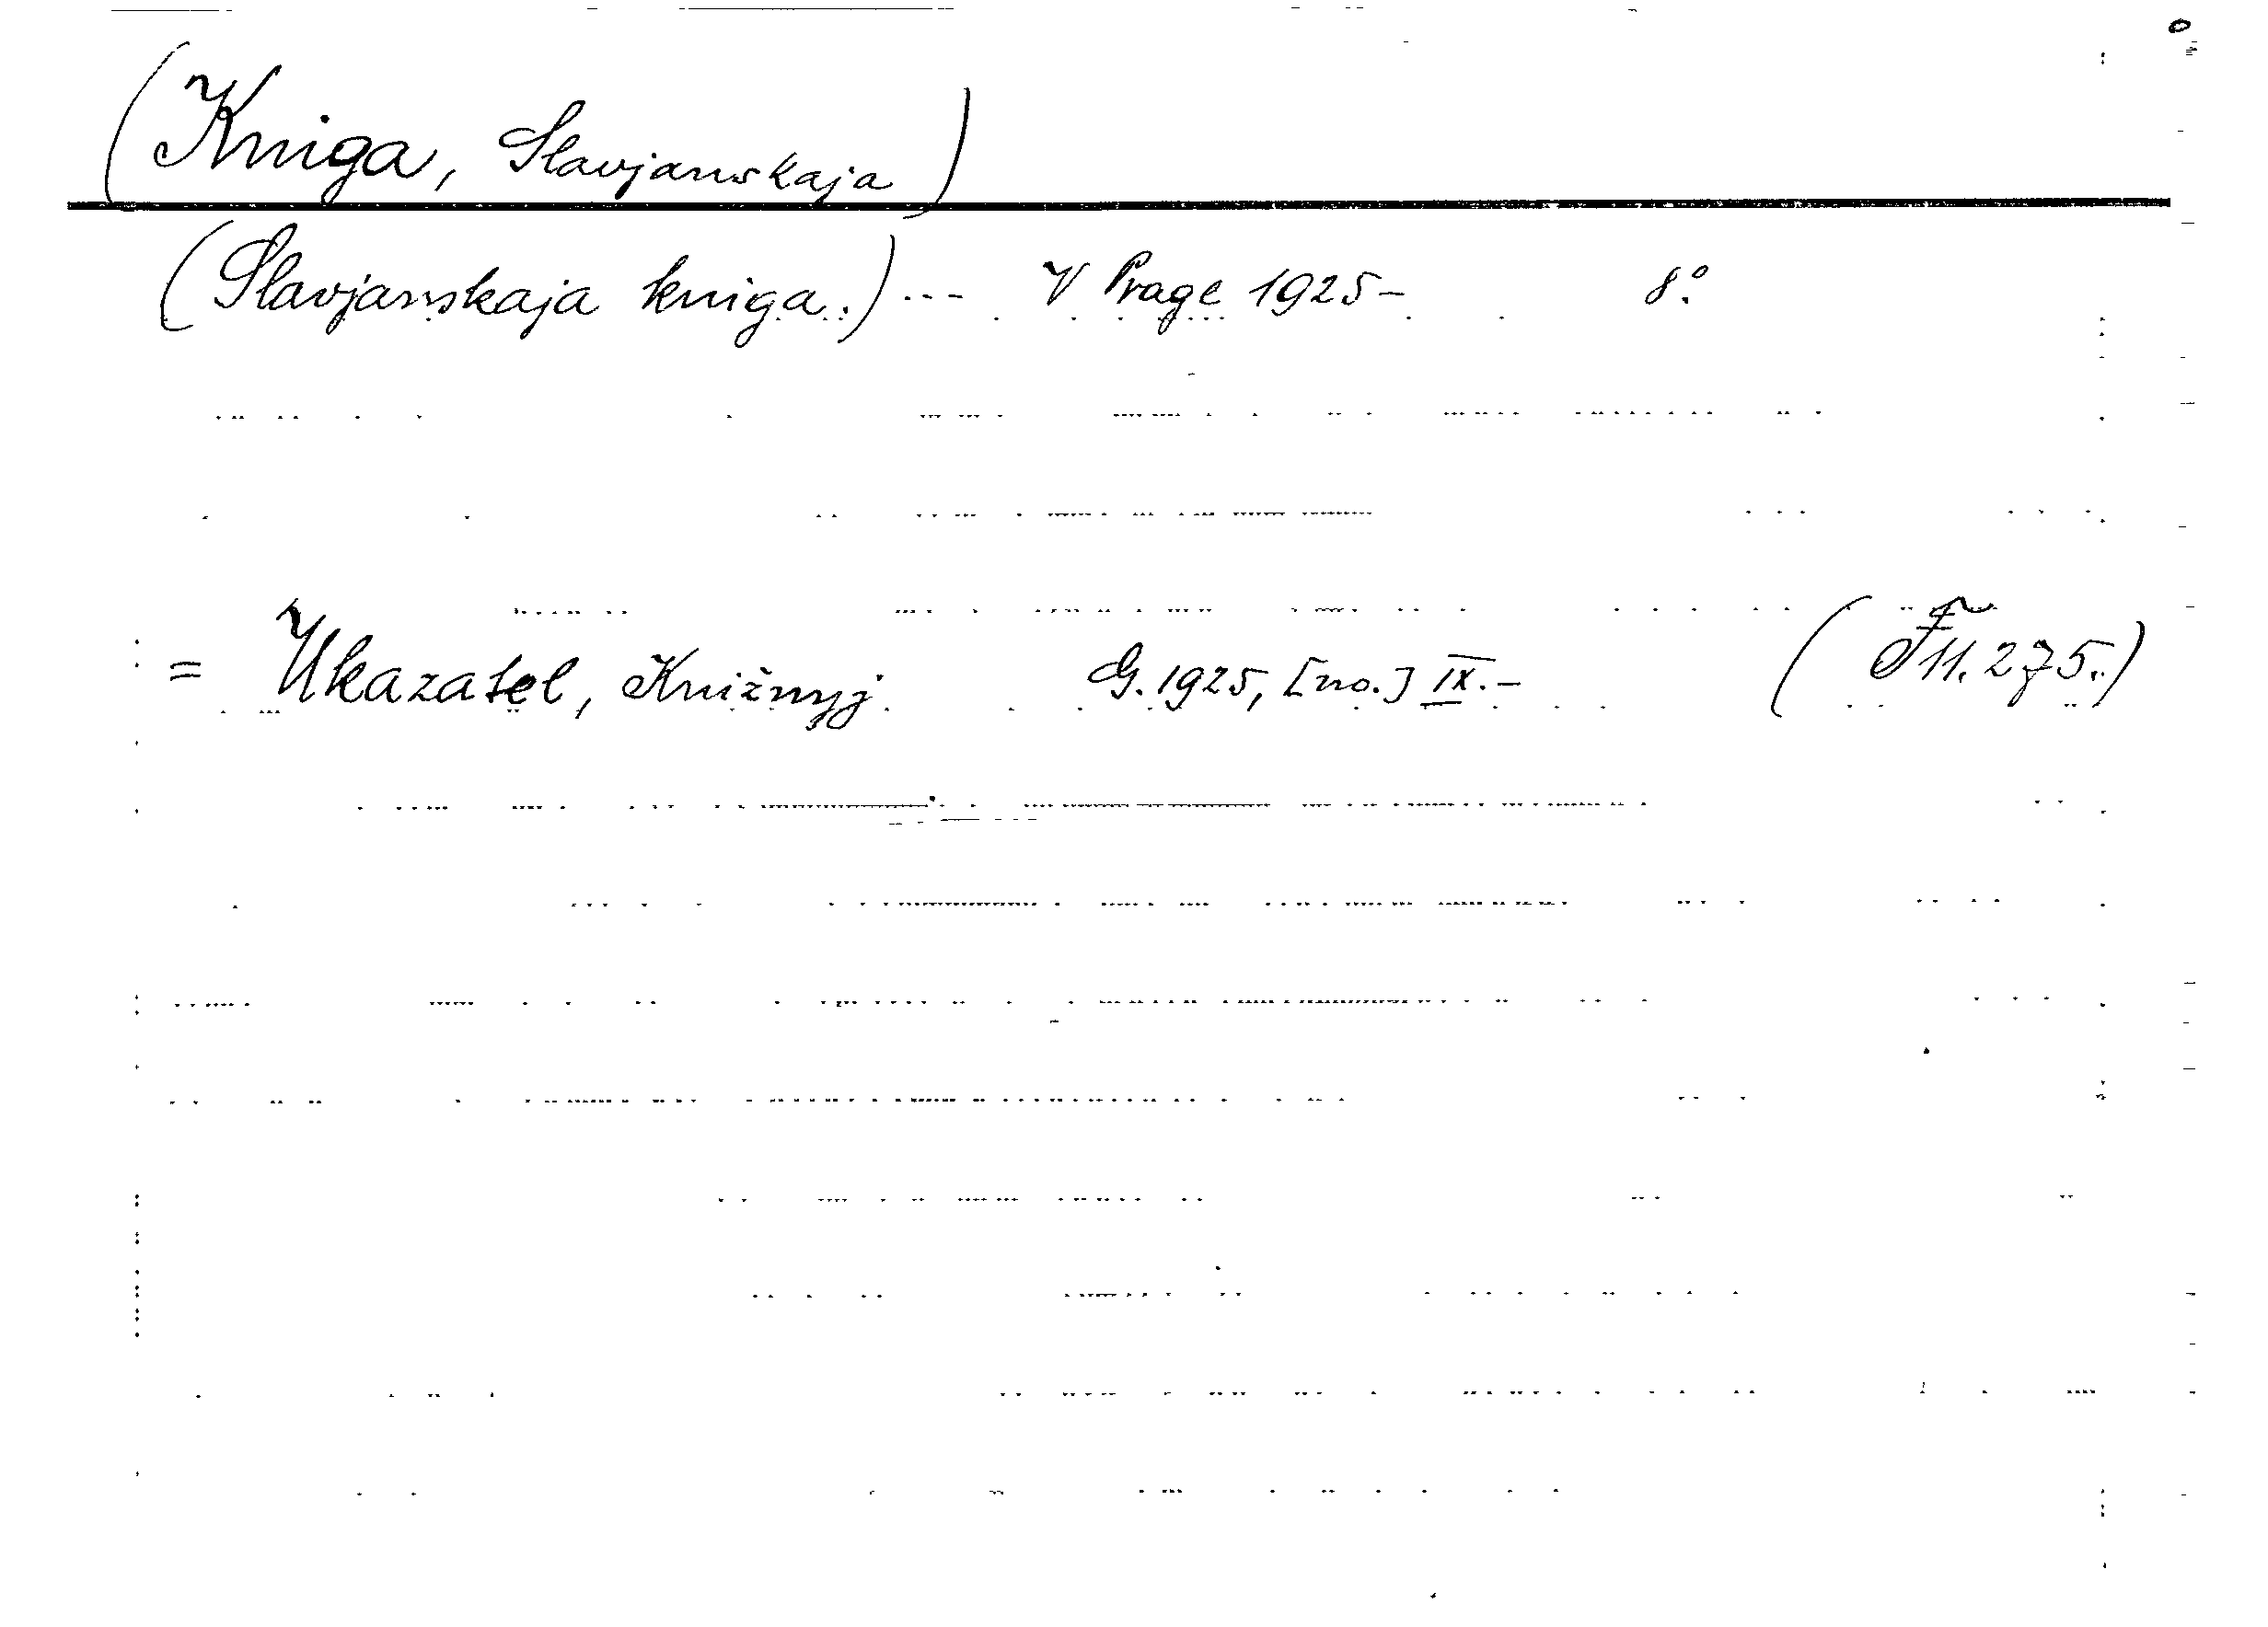 (Kniga, Slavjanskaja)
(Slavjanskaja kniga.) --- V Prage 1925- 8°.
= Ukazatel, Knižnyj. G. 1925, [no.] IX.- (F 11.275.)